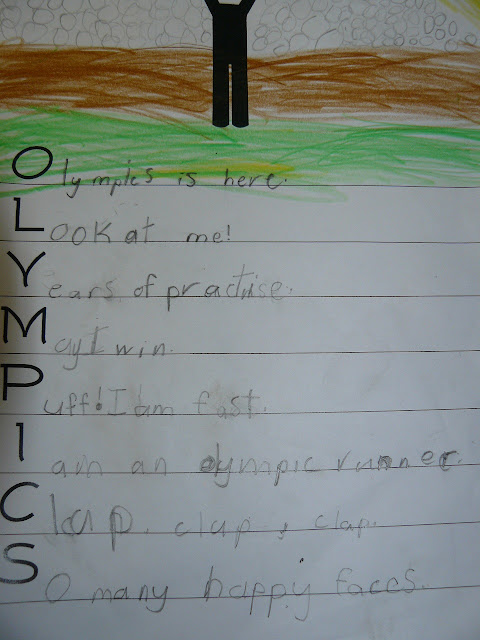 Olympics is here.
Look at me!
Years of practise.
May I win.
Puff! I am fast.
I am an olympic runner.
Clap, clap, clap.
So many happy faces.